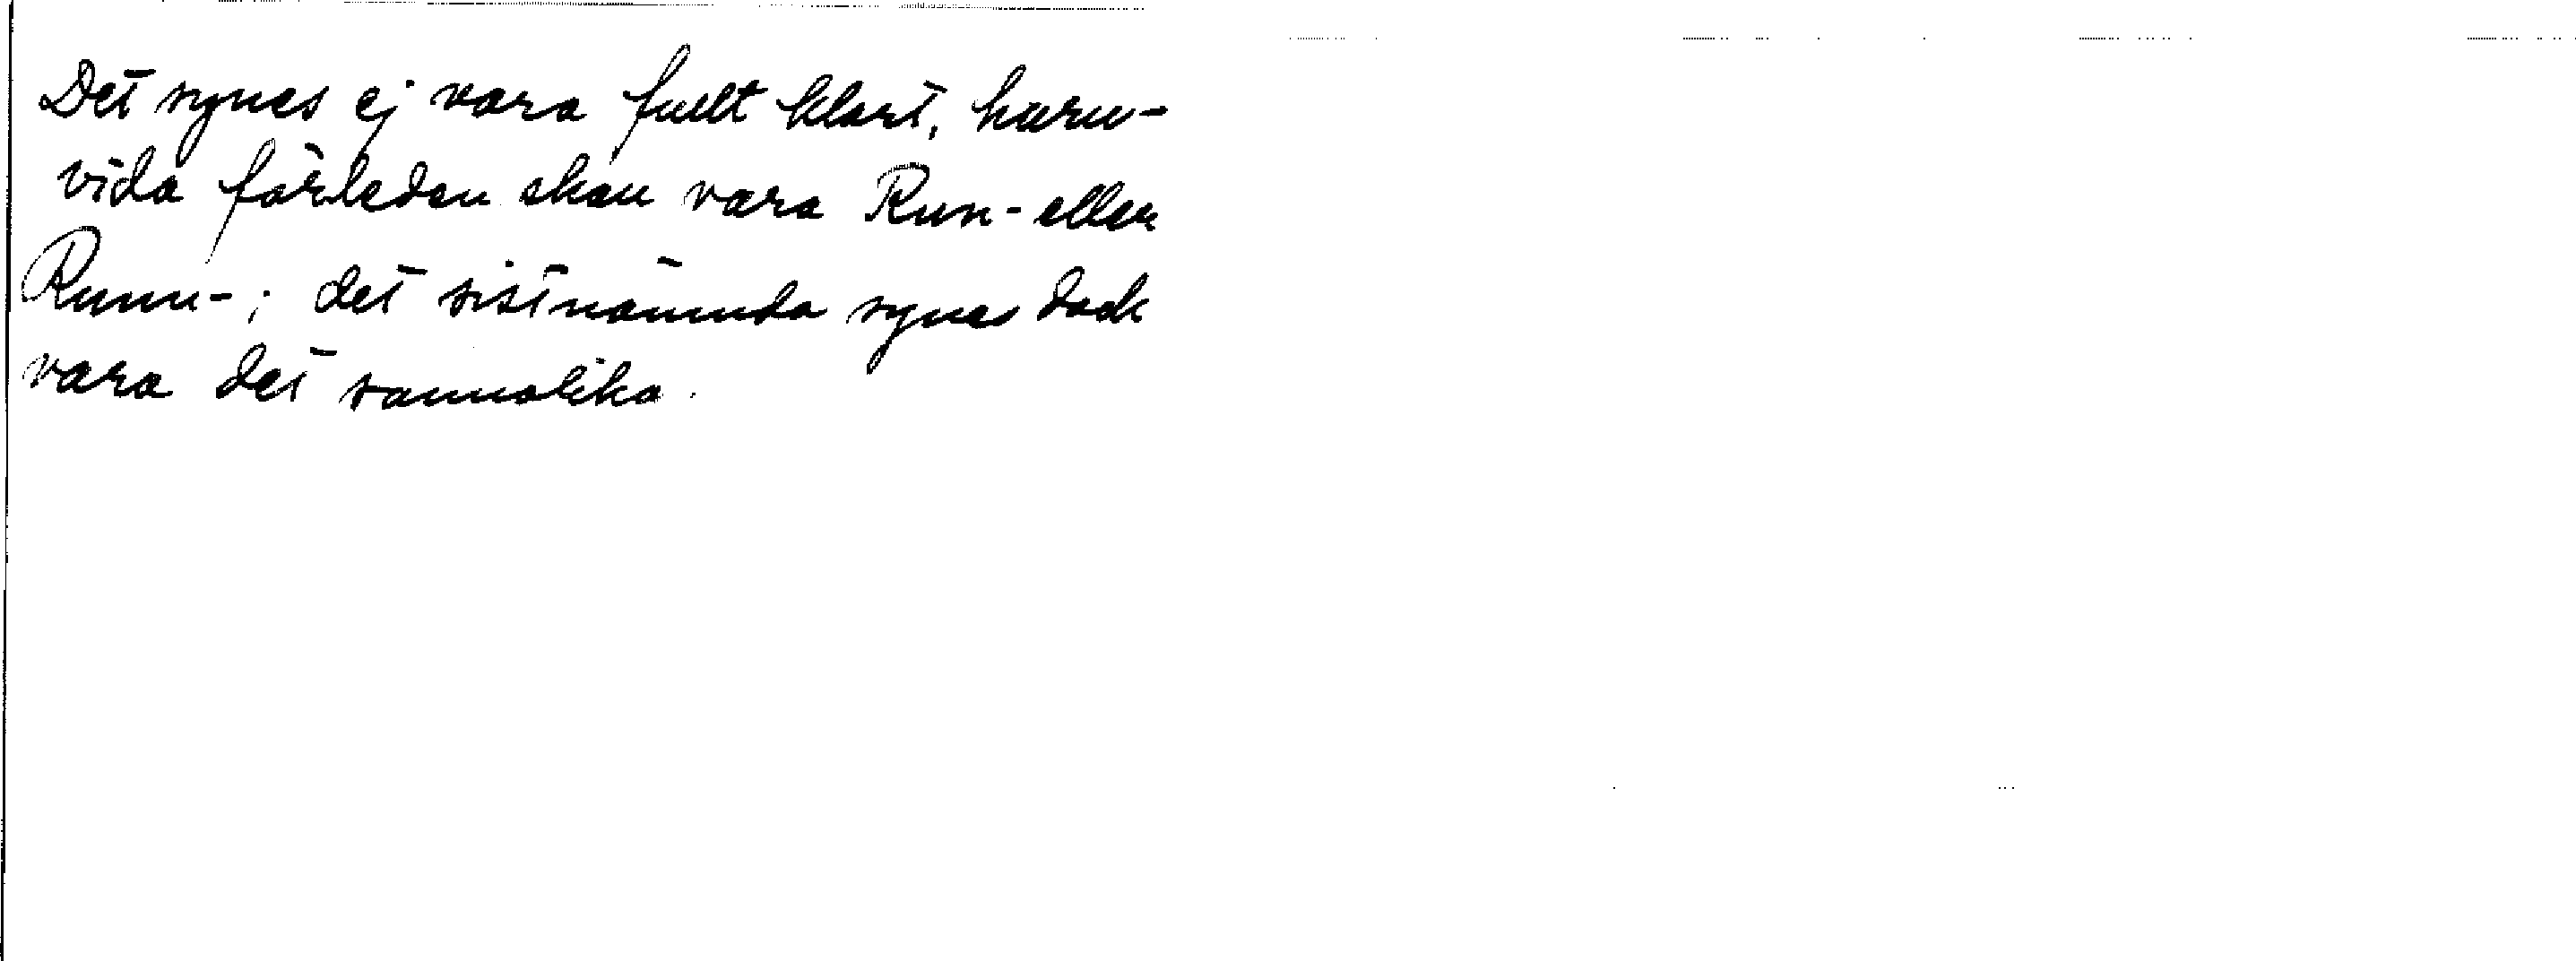 Det synes ej vara fullt klart, huru-
vida förleden skall vara Run- eller
Runn-; det sistnämnda synes dock
vara det sannolika.